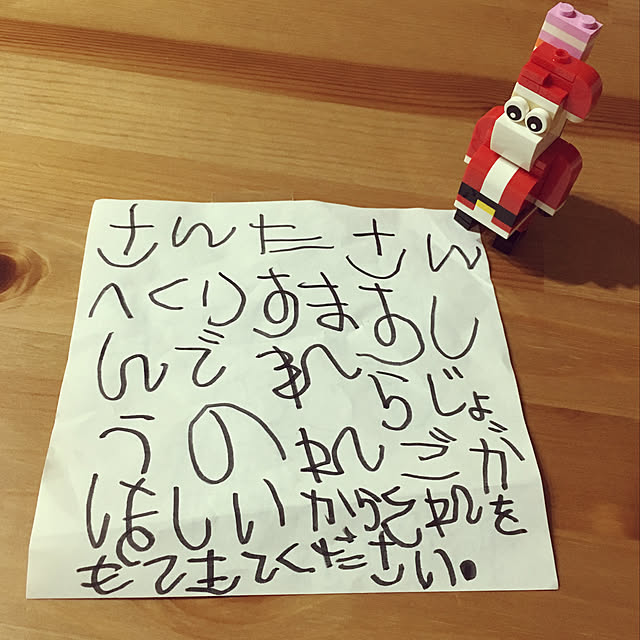 さんたさん
へくりすますし
んでれらじょ
うのれごが
ほしいからそれを
もてきてください。